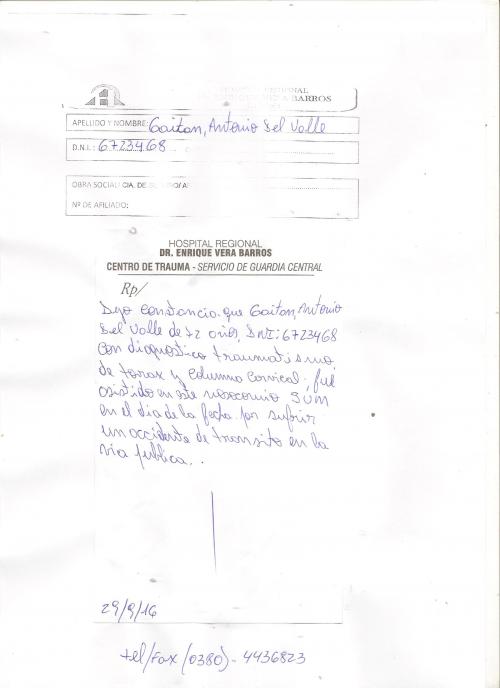 REGIONAL
VERA BARROS
APELLIDO Y NOMBRE: Gaitan, Antonio Del Valle
D.N.I.: 6723468
OBRA SOCIAL/CIA. DE
Nº DE AFILIADO:
HOSPITAL REGIONAL
DR. ENRIQUE VERA BARROS
CENTRO DE TRAUMA - SERVICIO DE GUARDIA CENTRAL
Rp/
Dejo constancia que Gaitan, Antonio
Del Valle de 72 años, DNI: 6723468
con diagnostico traumatismo
de torax y columna cervical, fue
asistido en este nosocomio
en el dia de la fecha por sufrir
un accidente de transito en la
via publica.
29/9/16
tel/Fax (0380) - 4436823